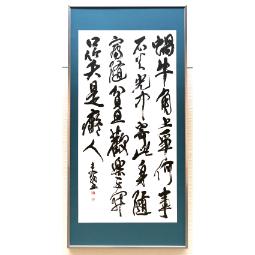 蝸牛角上爭何事
石火光中寄此身隨
富隨貧且歡樂不開
口笑是癡人